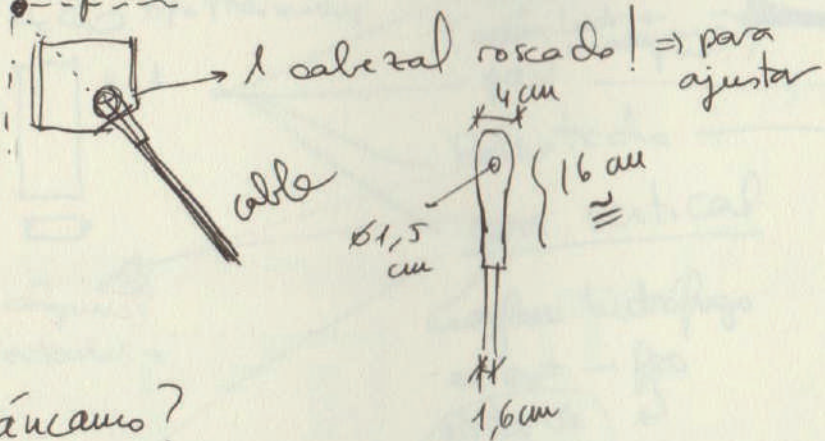 1 cabezal roscado! ⇒ para
ajustar
4cm
cable
ø1,5
cm
16 cm
≈
1,6cm
áncamo?